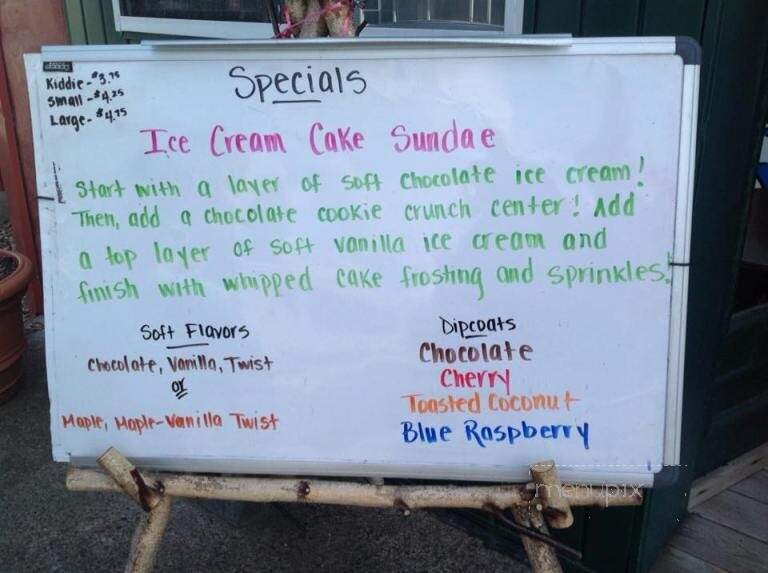 Kiddie - $3.75
Small - $4.25
Large - $4.75
Specials
Ice Cream Cake Sundae
Start with a layer of soft chocolate ice cream!
Then, add a chocolate cookie crunch center! Add
a top layer of soft vanilla ice cream and
finish with whipped cake frosting and sprinkles!
Soft Flavors
Chocolate, Vanilla, Twist
or
Maple, Maple-Vanilla Twist
Dipcoats
Chocolate
Cherry
Toasted Coconut
Blue Raspberry
menupix